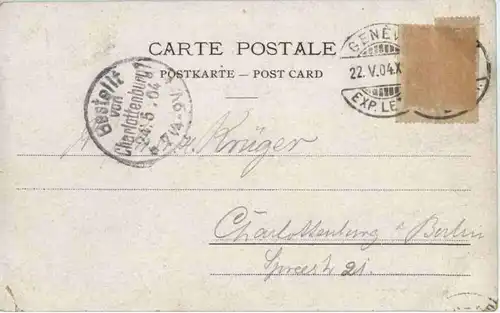 CARTE POSTALE
POSTKARTE – POST CARD
GENÈV
22.V.04.X
EXP. LE
Bestellt
von
Charlottenburg 1
24.5.04
Krüger
Charlottenburg b Berlin
Spreestr 21.